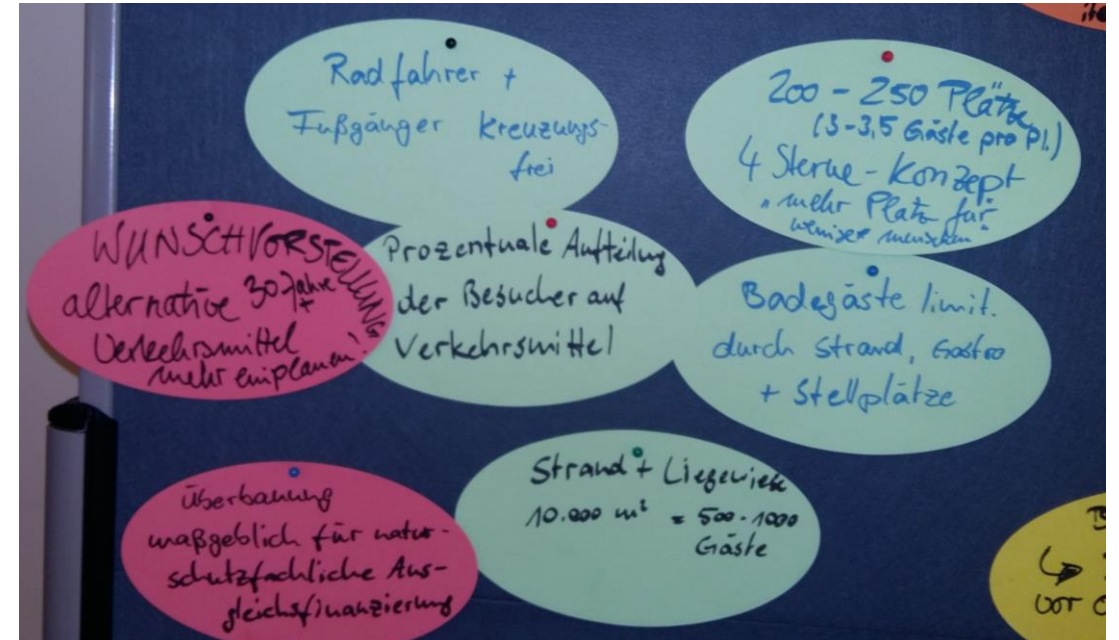 Radfahrer +
Fußgänger Kreuzungs-
frei
200 - 250 Plätze
(3-3,5 Gäste pro Pl.)
4 Sterne-Konzept
"mehr Platz für
weniger menschen
WUNSCHVORSTELLUNG
30 Jahre +
alternative
Verkehrsmittel
mehr einplanen!
Prozentuale Aufteilung
der Besucher auf
Verkehrsmittel
Badegäste limit.
durch Strand, Gastro
+ Stellplätze
Überbauung
maßgeblich für natur-
schutzfachliche Aus-
gleichsfinanzierung
Strand + Liegewiese
10.000 m² = 500-1000
Gäste
B
↳
vor